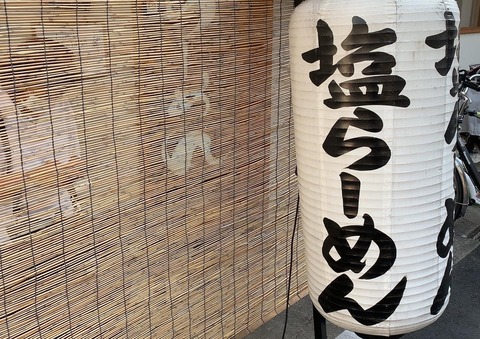 塩らーめん